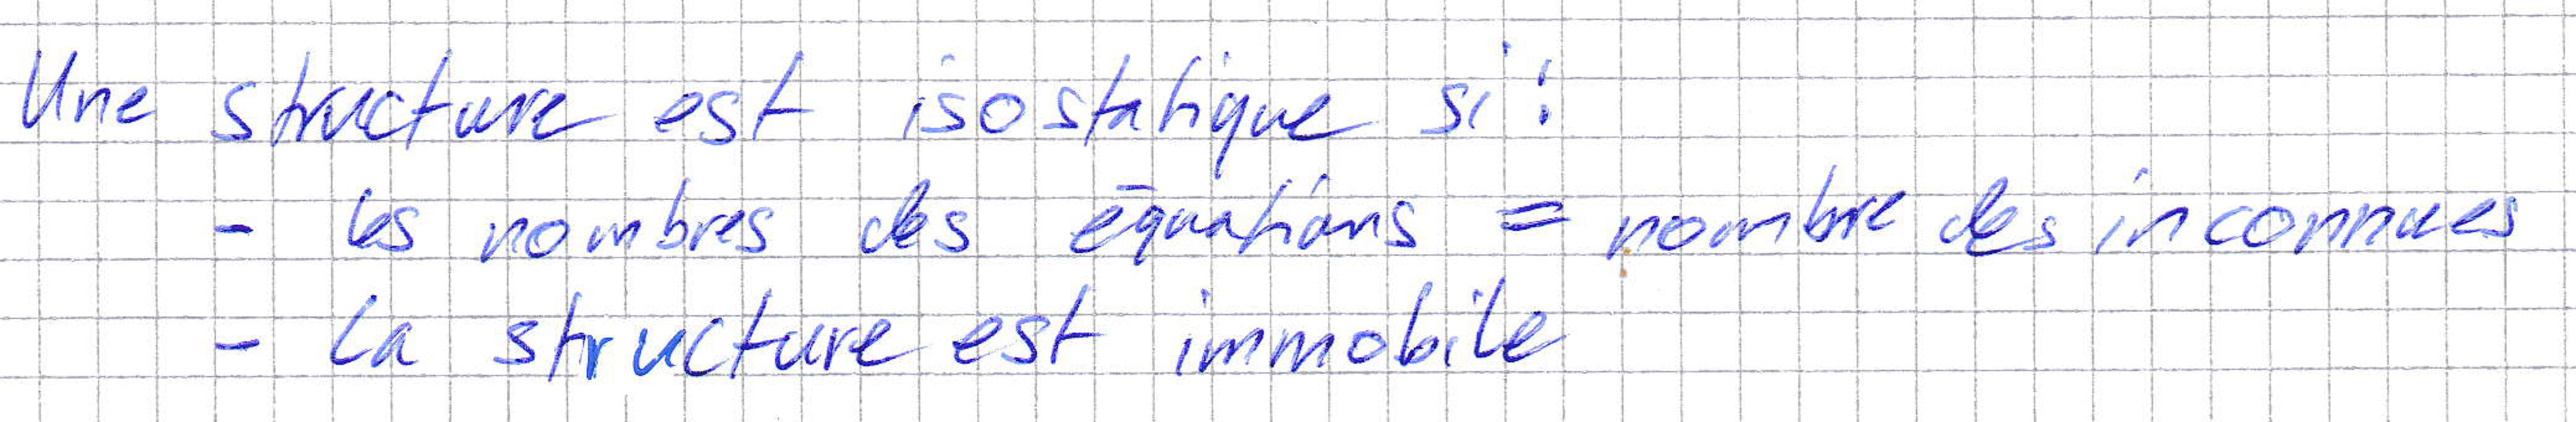 Une structure est isostatique si :
- les nombres des équations = nombre des inconnues
- la structure est immobile